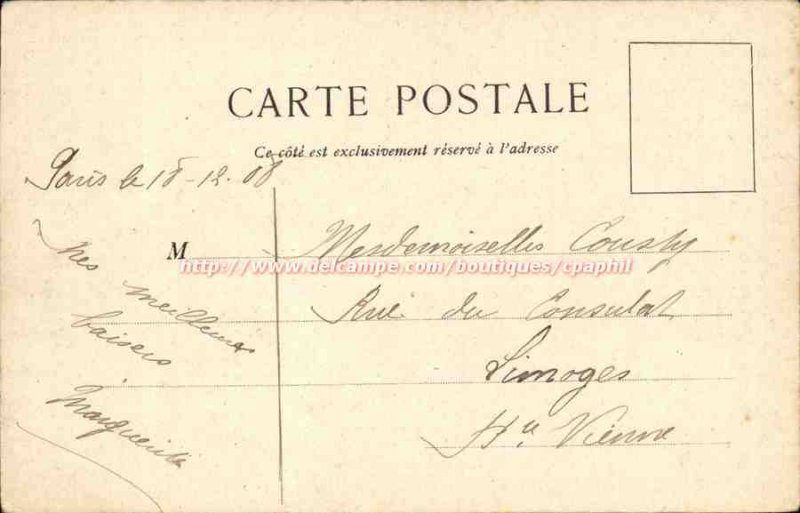 CARTE POSTALE
Ce côté est exclusivement réservé à l'adresse
Paris le 18-12-08
M
Mesdemoiselles Cousty
http://www.delcampe.com/boutiques/cpaphil
Rue du Consulat
Limoges
Hte Vienne
Mes meilleurs
baisers
Marguerite